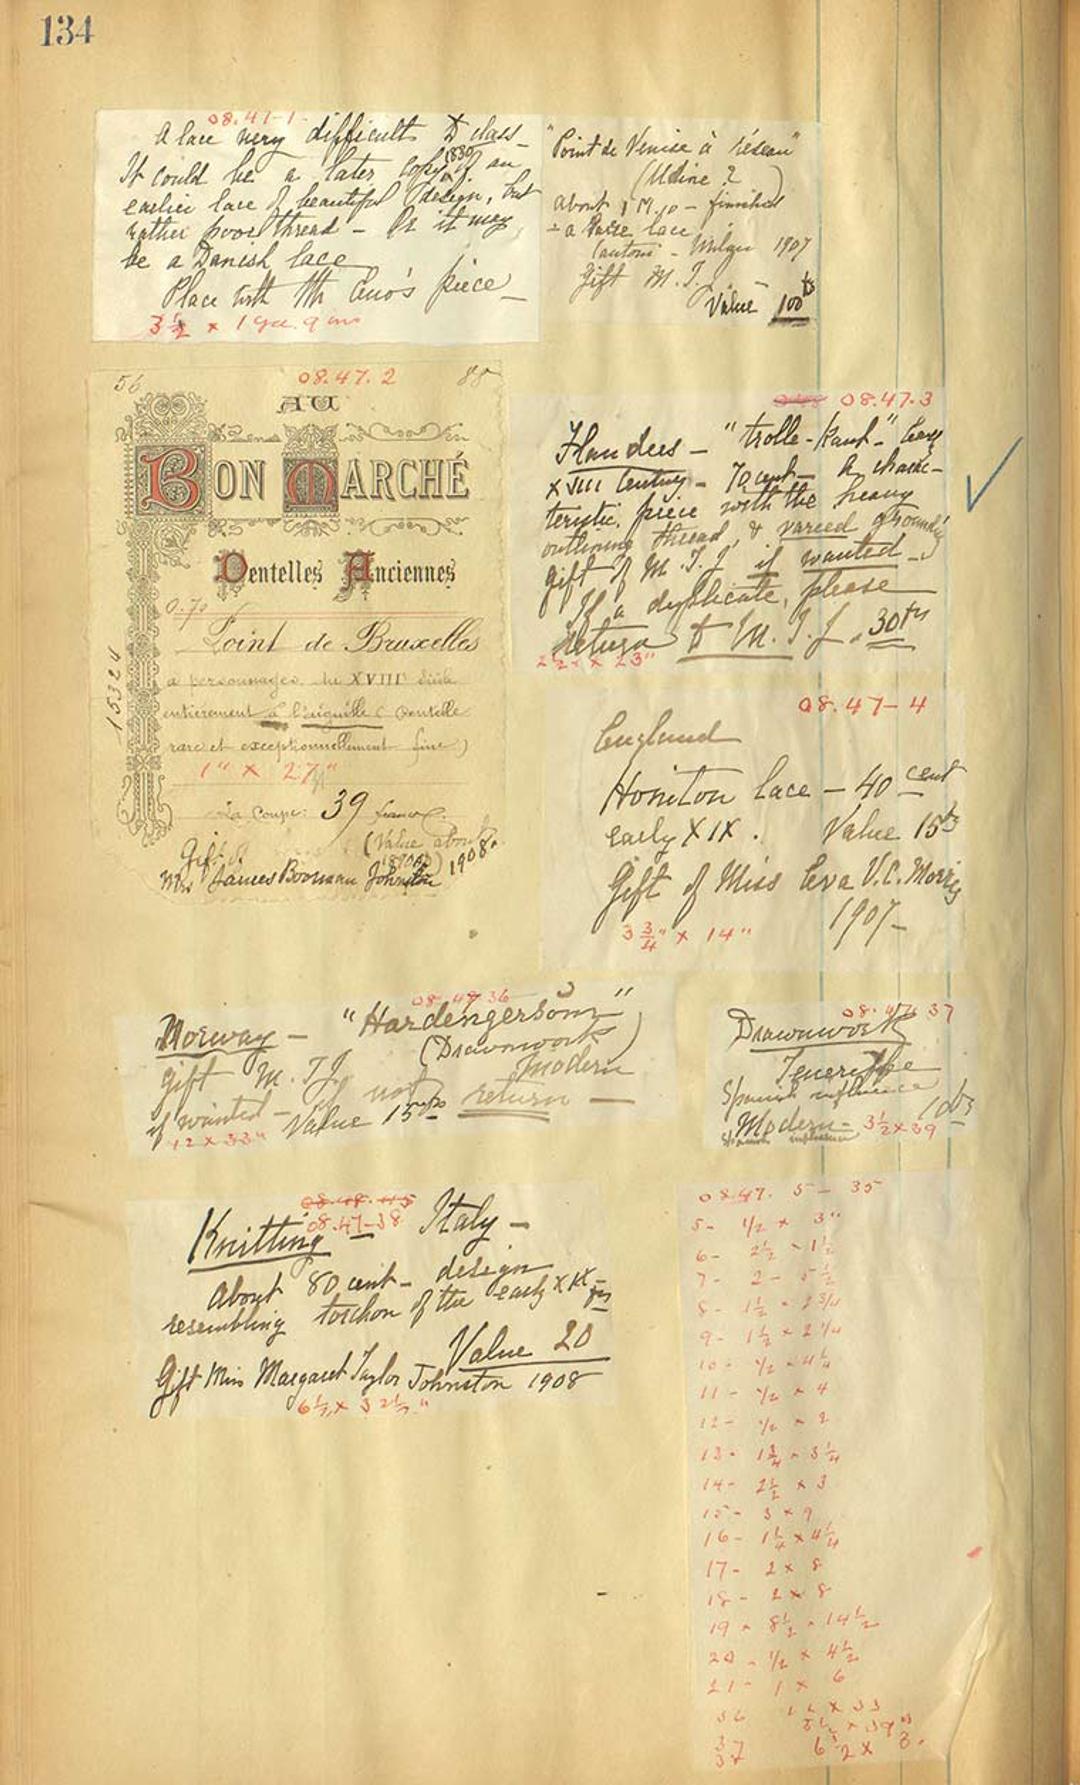 134
08.47-1-
A lace very difficult to class-
It could be a later copy (1830) of an
earlier lace of beautiful design, but
rather poor thread - Or it may
be a Danish lace
Place with Mr piece -
3 1/2 x 1 yd. 9 ins
"Point de Venise à réseau"
(Udine ?)
about 1 M. 10 - finished
- a lace
Cantoni - Milan 1907
Gift M. T. J.
Value 100
56 08.47.2 88
AU
BON MARCHÉ
Dentelles Anciennes
0.70
Point de Bruxelles
a personnages du XVIII Siècle
entièrement à l'aiguille (Dentelle
rare et exceptionnellement fine)
1" x 27"
La Coupe: 39 francs
(Value about
Gift of
Mrs James Boorman Johnston 1908.
15324
08.47.3
Flanders - "trolle-kant" lace
XVIII Century - 70 cent - A charac-
teristic piece with the heavy
outlining thread, & varied grounds
gift of M. T. J if wanted -
If a duplicate, please
return to M. T. J. 30
2 1/2 x 23"
08.47-4
England
Honiton lace - 40 cent
early XIX. Value 15
Gift of Miss Eva V.C. Morris
1907-
3 3/4" x 14"
08.47 36
Norway - "Hardengersöm"
(Drawnwork)
gift M. T. J. Modern
if wanted - If not return -
12 x 33" Value 15
08.47 37
Drawnwork
Teneriffe
Spanish influence
Modern - 3 1/2 x 39
Spanish influence
08.47-38
Knitting - Italy -
About 80 cent - design
resembling torchon of the early XIX
Value 20
Gift Miss Margaret Taylor Johnston 1908
6 1/2 x 32 1/2"
08.47. 5 - 35
5- 1/2 x 3"
6- 2 1/2 - 1 1/2
7- 2 - 5 1/2
8- 1 1/2 - 2 3/4
9- 1 1/2 x 2 1/4
10- 1/2 - 4 1/4
11- 1/2 x 4
12- 1/2 - 2
13- 1 3/4 - 3 1/4
14- 2 1/2 x 3
15- 3 x 9
16- 1 1/4 x 4 1/4
17- 2 x 8
18- 2 x 8
19 - 8 1/2 - 14 1/2
20 - 1/2 x 4 1/2
21- 1 x 6
36 12 x 33
37 3 1/2 x 39"
6 1/2 x